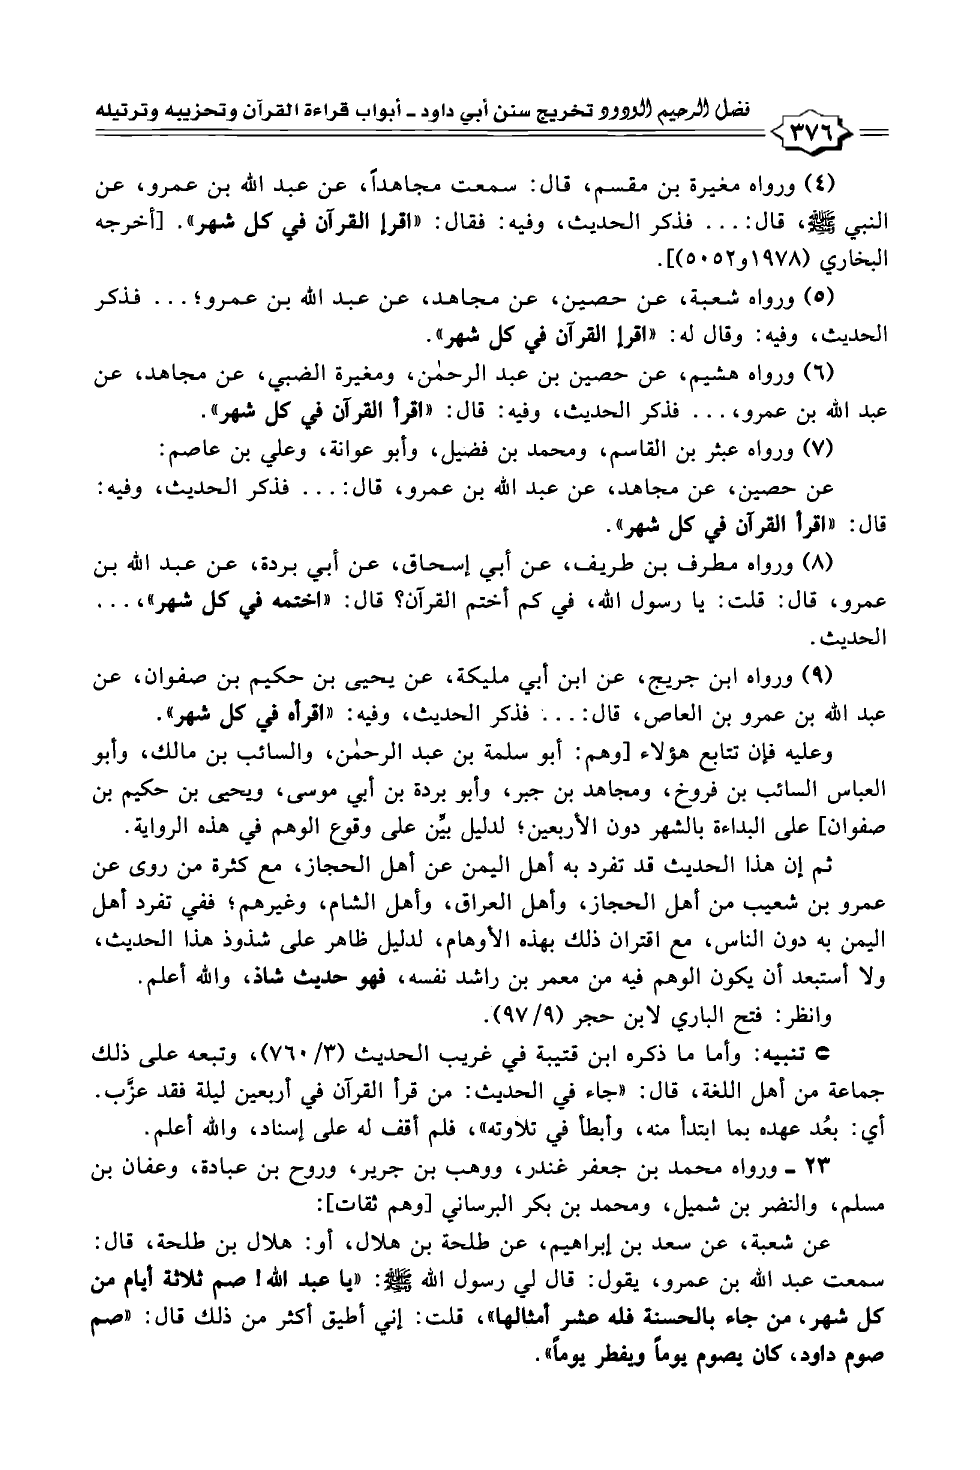 فضل الرحيم الودود تخريج سنن أبي داود ـ أبواب قراءة القرآن وتحزيبه وترتيله
٣٧٦
(٤) ورواه مغيرة بن مقسم، قال: سمعت مجاهداً، عن عبد الله بن عمرو، عن
النبي ﷺ، قال:... فذكر الحديث، وفيه: فقال: «اقرإ القرآن في كل شهر». [أخرجه
البخاري (١٩٧٨و٥٠٥٢)].
(٥) ورواه شعبة، عن حصين، عن مجاهد، عن عبد الله بن عمرو؛... فذكر
الحديث، وفيه: وقال له: «اقرإ القرآن في كل شهر».
(٦) ورواه هشيم، عن حصين بن عبد الرحمٰن، ومغيرة الضبي، عن مجاهد، عن
عبد الله بن عمرو،... فذكر الحديث، وفيه: قال: «اقرأ القرآن في كل شهر».
(٧) ورواه عبثر بن القاسم، ومحمد بن فضيل، وأبو عوانة، وعلي بن عاصم:
عن حصين، عن مجاهد، عن عبد الله بن عمرو، قال:... فذكر الحديث، وفيه:
قال: «اقرأ القرآن في كل شهر».
(٨) ورواه مطرف بن طريف، عن أبي إسحاق، عن أبي بردة، عن عبد الله بن
عمرو، قال: قلت: يا رسول الله، في كم أختم القرآن؟ قال: «اختمه في كل شهر»،...
الحديث.
(٩) ورواه ابن جريج، عن ابن أبي مليكة، عن يحيى بن حكيم بن صفوان، عن
عبد الله بن عمرو بن العاص، قال:... فذكر الحديث، وفيه: «اقرأه في كل شهر».
وعليه فإن تتابع هؤلاء [وهم: أبو سلمة بن عبد الرحمٰن، والسائب بن مالك، وأبو
العباس السائب بن فروخ، ومجاهد بن جبر، وأبو بردة بن أبي موسى، ويحيى بن حكيم بن
صفوان] على البداءة بالشهر دون الأربعين؛ لدليل بيِّن على وقوع الوهم في هذه الرواية.
ثم إن هذا الحديث قد تفرد به أهل اليمن عن أهل الحجاز، مع كثرة من روى عن
عمرو بن شعيب من أهل الحجاز، وأهل العراق، وأهل الشام، وغيرهم؛ ففي تفرد أهل
اليمن به دون الناس، مع اقتران ذلك بهذه الأوهام، لدليل ظاهر على شذوذ هذا الحديث،
ولا أستبعد أن يكون الوهم فيه من معمر بن راشد نفسه، فهو حديث شاذ، والله أعلم.
وانظر: فتح الباري لابن حجر (٩٧/٩).
تنبيه: وأما ما ذكره ابن قتيبة في غريب الحديث (٧٦٠/٣)، وتبعه على ذلك
جماعة من أهل اللغة، قال: «جاء في الحديث: من قرأ القرآن في أربعين ليلة فقد عزَّب.
أي: بعُد عهده بما ابتدأ منه، وأبطأ في تلاوته»، فلم أقف له على إسناد، والله أعلم.
٢٣ ـ ورواه محمد بن جعفر غندر، ووهب بن جرير، وروح بن عبادة، وعفان بن
مسلم، والنضر بن شميل، ومحمد بن بكر البرساني [وهم ثقات]:
عن شعبة، عن سعد بن إبراهيم، عن طلحة بن هلال، أو: هلال بن طلحة، قال:
سمعت عبد الله بن عمرو، يقول: قال لي رسول الله ﷺ: «يا عبد الله! صم ثلاثة أيام من
كل شهر، من جاء بالحسنة فله عشر أمثالها»، قلت: إني أطيق أكثر من ذلك قال: «صم
صوم داود، كان يصوم يوماً ويفطر يوماً».